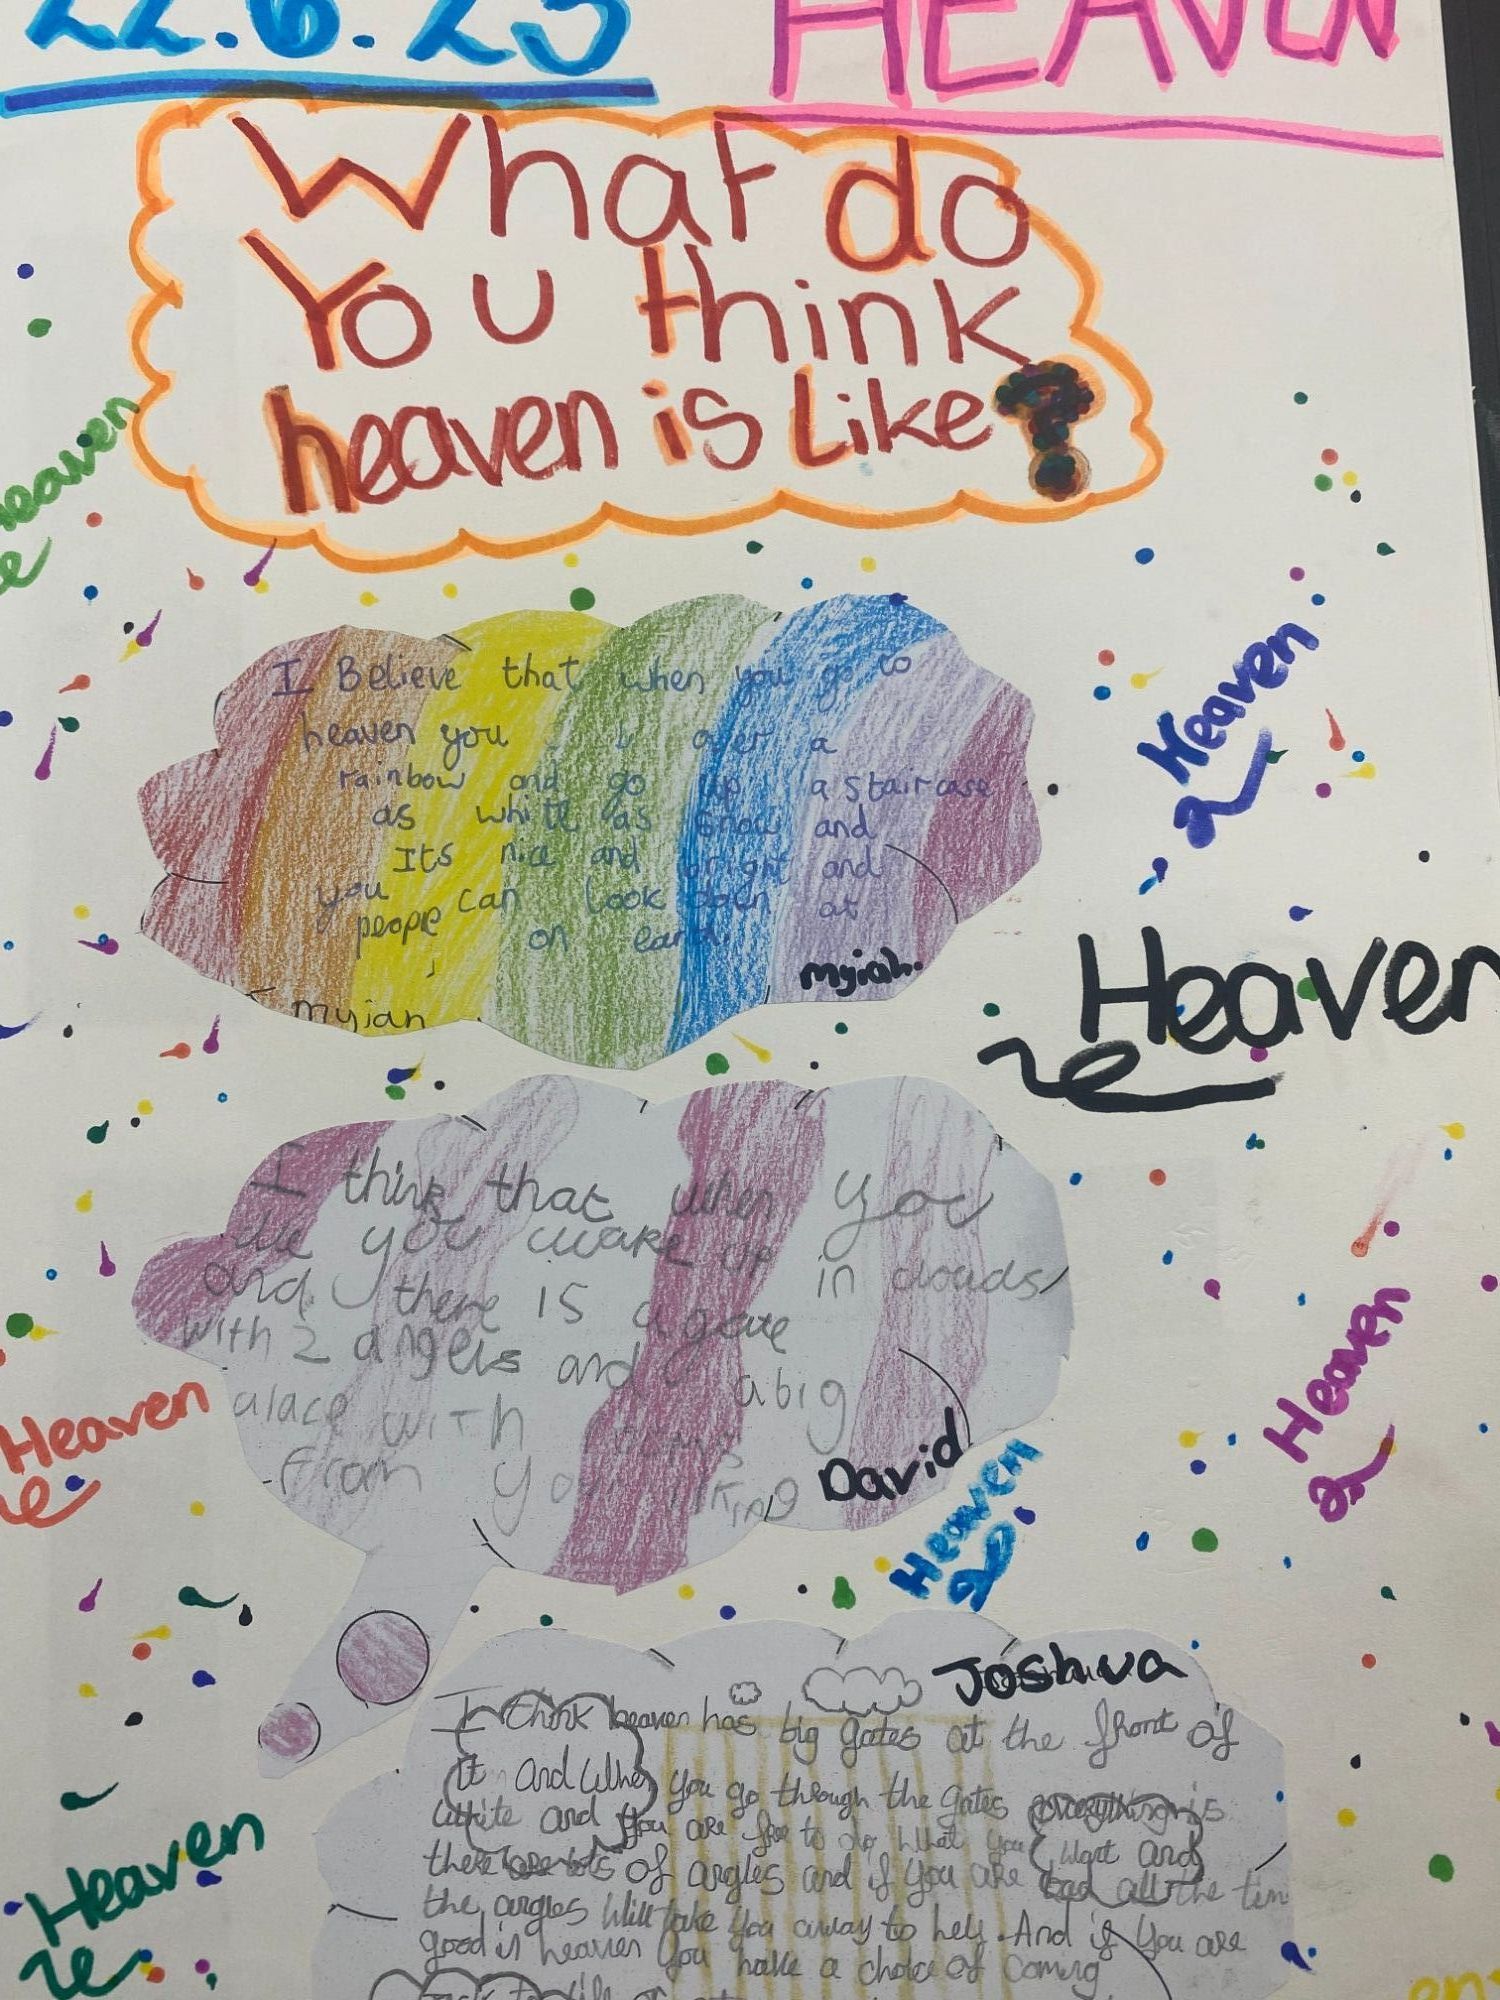 22.6.23
HEAVEN
What do
You think
heaven is Like?
heaven
I Believe that when you go to
heaven you over a
rainbow and go up a staircase
as white as snow and
Its nice and bright and
you can look down at
people on earth.
myiah.
myiah
Heaven
Heaven
I think that when you
die you wake up in clouds
and there is a gate
with 2 angels and a big
with
from your liking
David
Heaven
Heaven
Heaven
Joshua
I think heaven has big gates at the front of
it and when you go through the gates everything is
white and you are free to do what you want and
there are lots of angles and if you are bad all the time
the angles will take you away to hell. And if you are
good in heaven you have a choice of coming
back to life or
Heaven